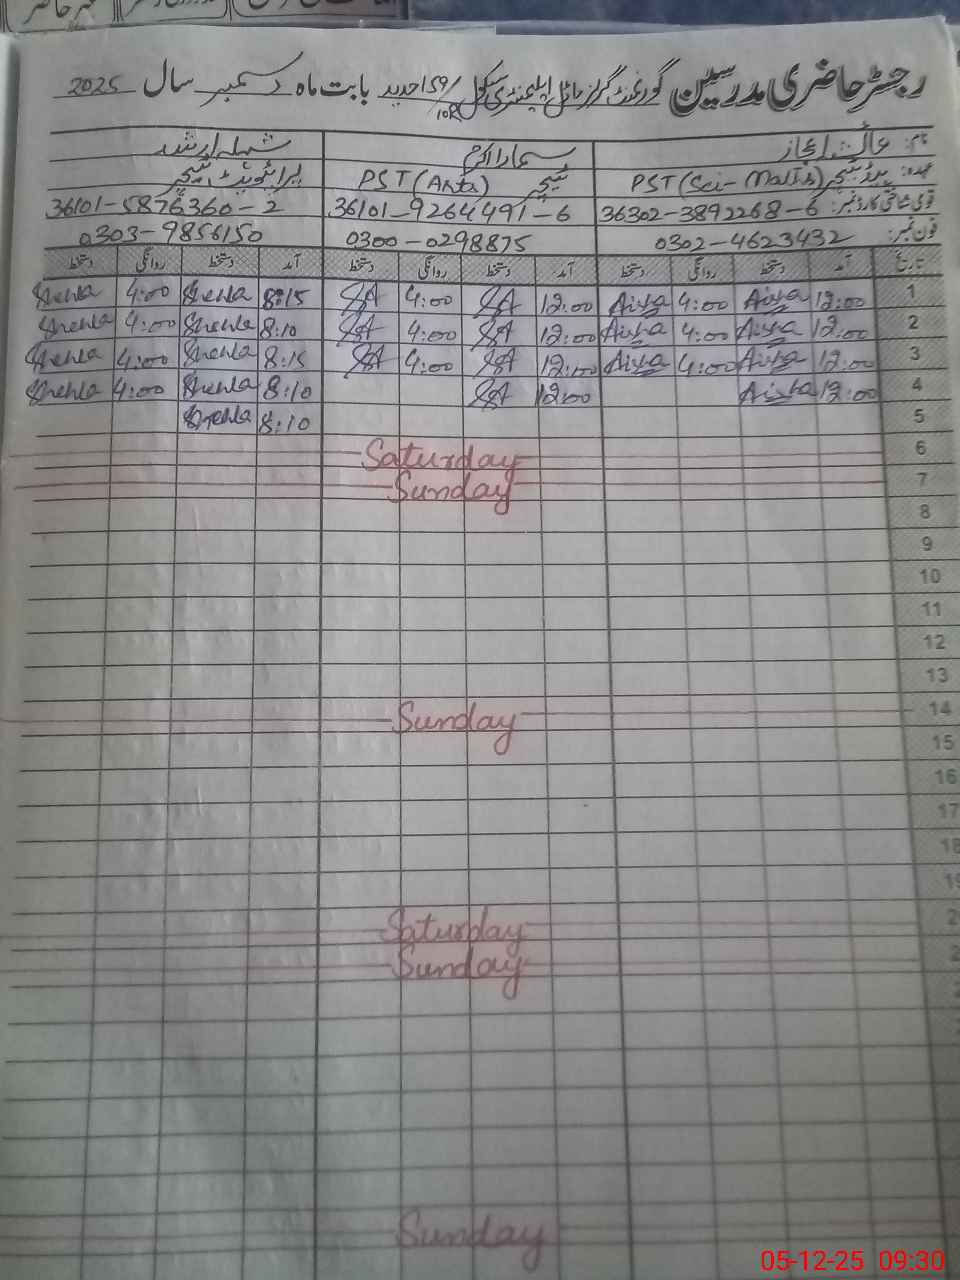 رجسٹر حاضری مدرسین گورنمنٹ گرلز ماڈل ایلیمنٹری سکول 159/10R جدید بابت ماہ دسمبر سال 2025
نام: عائشہ اعجاز سمارا اکرم شہلہ ارشد
عہدہ: ہیڈ ٹیچر PST (Sci-Math) ٹیچر PST (Arts) پرائیویٹ ٹیچر
قومی شناختی کارڈ نمبر: 36302-3892268-6 36101-9264491-6 36101-5876360-2
فون نمبر: 0302-4623432 0300-0298875 0303-9856150
تاریخ آمد دستخط روانگی دستخط آمد دستخط روانگی دستخط آمد دستخط روانگی دستخط
1 12:00 Aisha 4:00 Aisha 12:00 SA 4:00 SA 8:15 Shehla 4:00 Shehla
2 12:00 Aisha 4:00 Aisha 12:00 SA 4:00 SA 8:10 Shehla 4:00 Shehla
3 12:00 Aisha 4:00 Aisha 12:00 SA 4:00 SA 8:15 Shehla 4:00 Shehla
4 12:00 Aisha 12:00 SA 8:10 Shehla 4:00 Shehla
5 8:10 Shehla
6 Saturday
7 Sunday
8
9
10
11
12
13
14 Sunday
15
16
17
18
19
Saturday
Sunday
Sunday
05-12-25 09:30